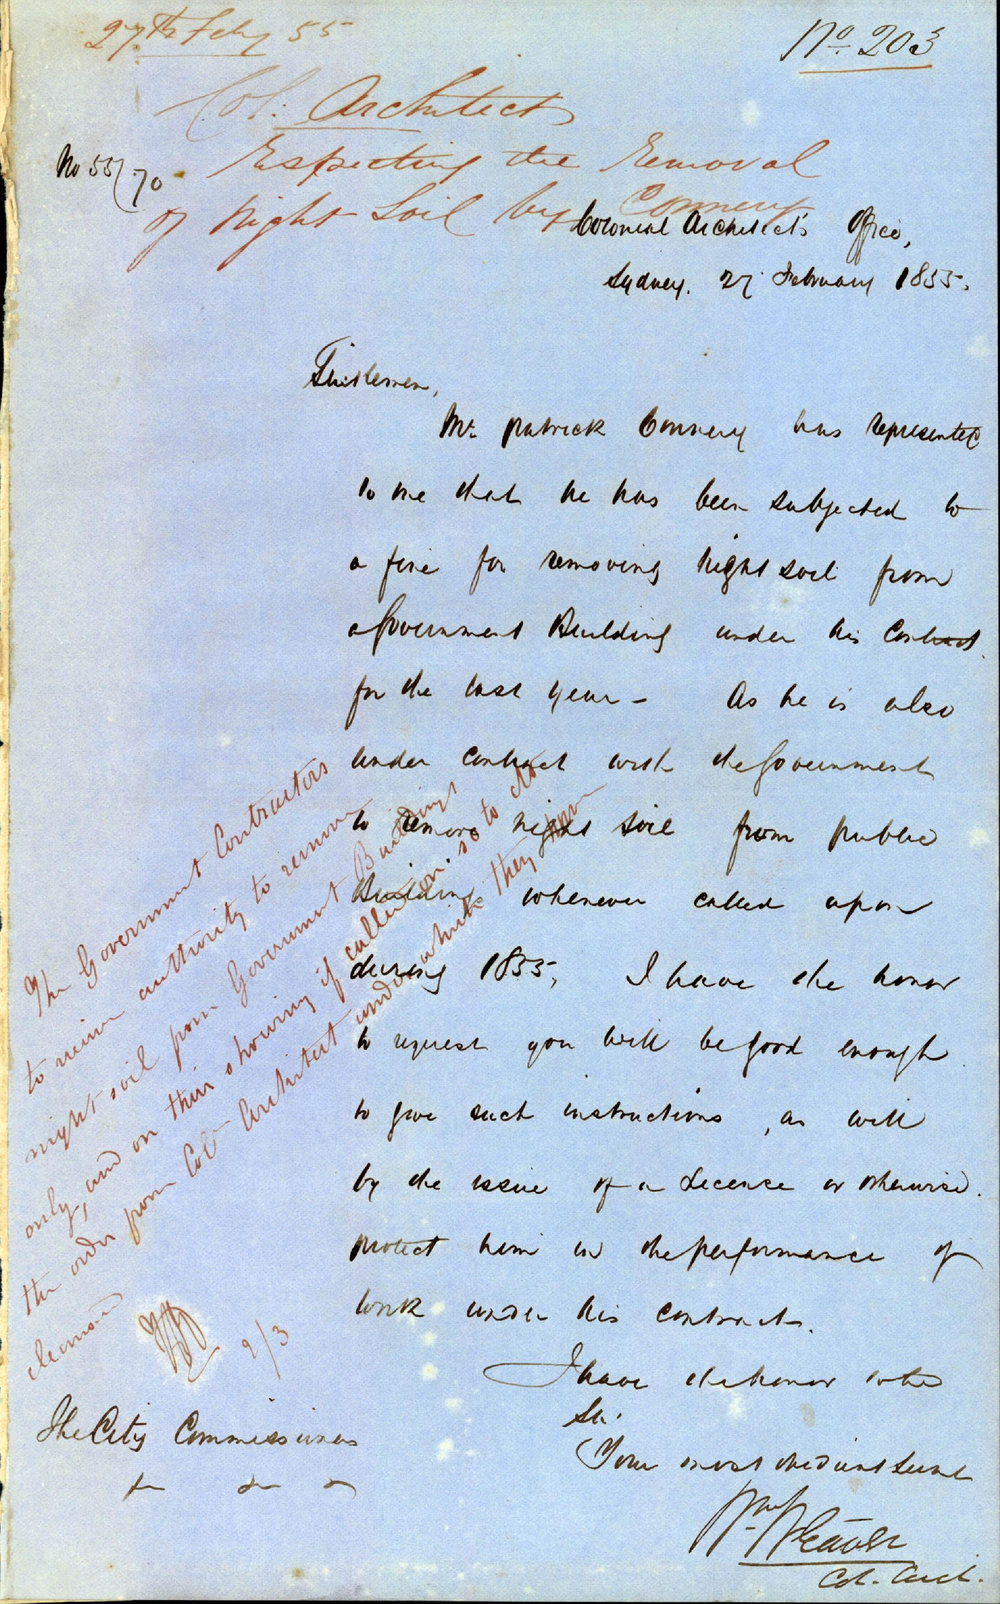 27th Feby 55
No 203
Col. Architect
No 55/70
Respecting the Removal
of Night Soil by Connery
Colonial Architect's Office,
Sydney. 27 February 1855.
Gentlemen,
Mr. Patrick Connery has represented
to me that he has been subjected to
a fine for removing night soil from
a Government Building under his contract
for the last year - As he is also
under contract with the Government
to remove night soil from public
Buildings whenever called upon
during 1855, I have the honor
to request you will be good enough
to give such instructions, as will
by the issue of a Licence or otherwise
protect him in the performance of
work under his contract.
I have the honor to be
Sir.
Your most obedient Servt
Wm Weaver
Col. Arch.
The Government Contractors
to receive authority to remove
night soil from Government Buildings
only, and on their showing if called on so to do
the order from Col Architect under which they
2/3
The City Commissioners